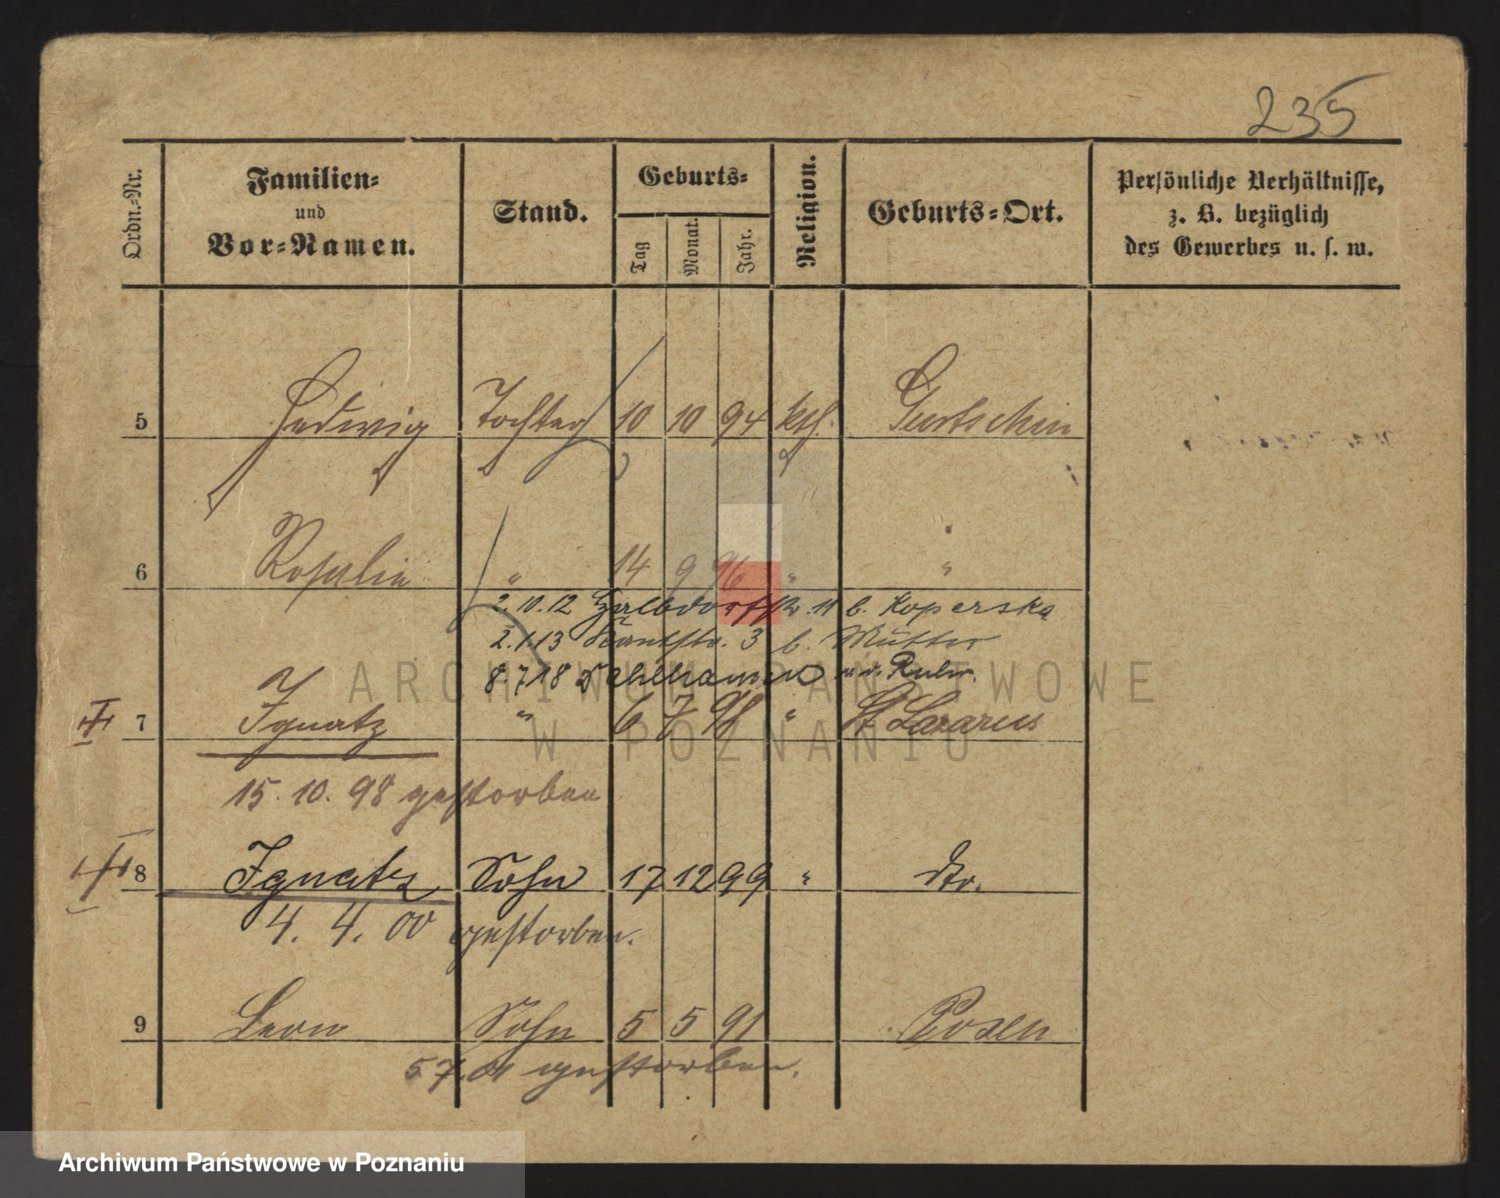 235
Ordn.-Nr. Familien- und Vor-Namen. Stand. Geburts- Tag Monat. Jahr. Religion. Geburts-Ort. Persönliche Verhältnisse, z. B. bezüglich des Gewerbes u. s. w.
5 Hedwig Tochter 10 10 94 kth. Gurtschin
6 Rosalie " 14 9 96 " "
2.10.12 Halbdorfstr. 11 b. Koperska
2.1.13 Kantstr. 3 b. Mutter
8.7.18 a. d. Ruhr.
7 Ignatz " 6 7 98 " St Lazarus
15.10.98 gestorben
8 Ignatz Sohn 17 12 99 " dto.
4. 4. 00 gestorben.
9 Leon Sohn 5 5 91 Posen
5 7. 01 gestorben.
ARCHIWUM PAŃSTWOWE
W POZNANIU
Archiwum Państwowe w Poznaniu